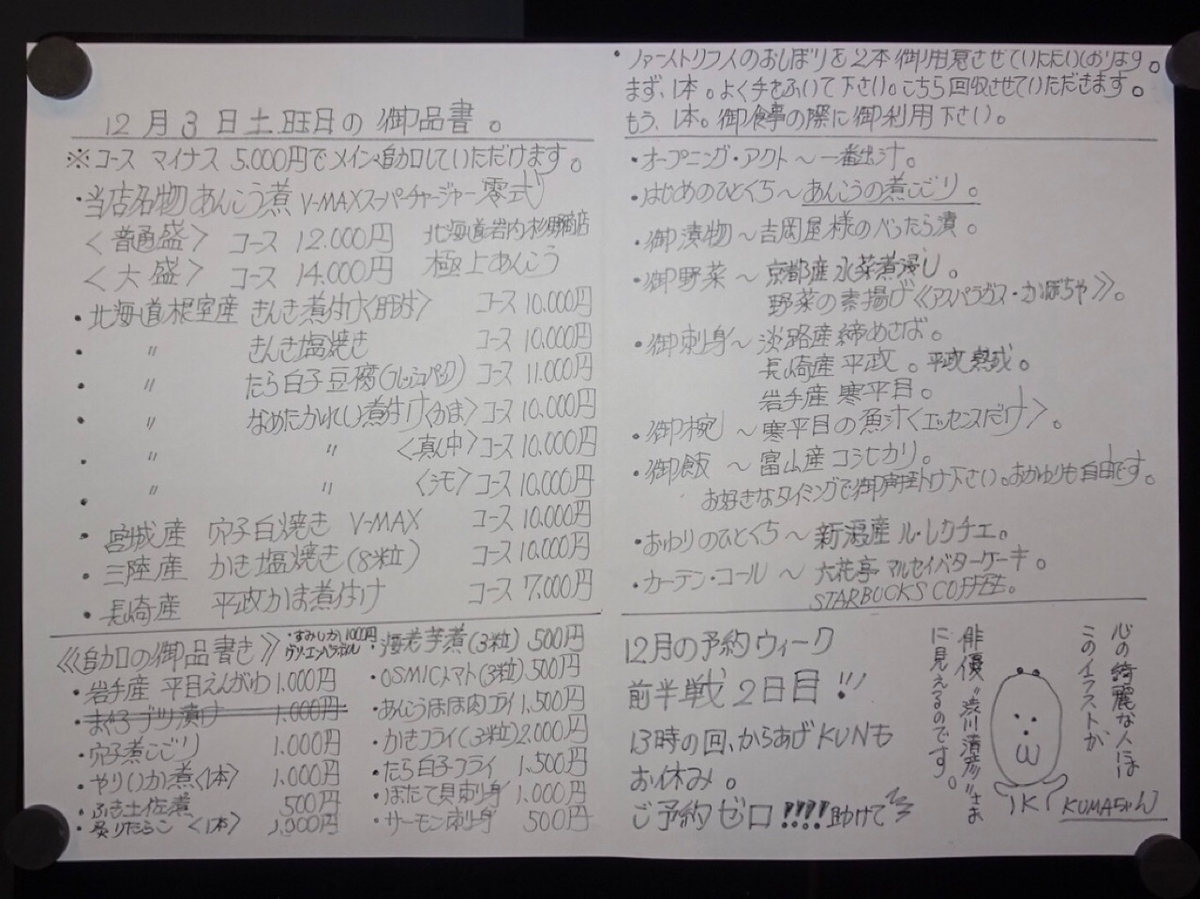 12月3日土曜日の御品書。
※コース マイナス 5.000円でメイン追加していただけます。
・当店名物あんこう煮 V-MAXスーパーチャージャー零式
〈普通盛〉 コース 12.000円 北海道岩内杉野商店
〈大盛〉 コース 14.000円 極上あんこう
・北海道根室産 きんき煮付け〈肝付〉 コース 10.000円
・〃 きんき塩焼き コース 10.000円
・〃 たら白子豆腐(フレッシュパック) コース 11.000円
・〃 なめたかれい煮付け〈かま〉 コース 10.000円
・〃 〃 〈真中〉 コース 10.000円
・〃 〃 〈シモ〉 コース 10.000円
・宮城産 穴子白焼き V-MAX コース 10.000円
・三陸産 かき塩焼き(8粒) コース 10.000円
・長崎産 平政かま煮付け コース 7.000円
《追加の御品書き》
・すみいか 1000円
・岩手産 平目えんがわ 1.000円
・まぐろブツ漬け 1.000円
・穴子煮こごり 1.000円
・やりいか煮〈1本〉 1.000円
・ふき土佐煮 500円
・炙りたらこ〈1本〉 1.000円
・海老芋煮(3粒) 500円
・OSMICトマト(3粒) 500円
・あんこうほほ肉フライ 1.500円
・かきフライ(3粒) 2.000円
・たら白子フライ 1.500円
・ほたて貝刺身 1.000円
・サーモン刺身 500円
・ファーストリフイのおしぼりを2本御用意させていただいております。
まず、1本。よく手をふいて下さい。こちら回収させていただきます。
もう、1本。御食事の際に御利用下さい。
・オープニング・アクト～一番出汁。
・はじめのひとくち～あんこうの煮こごり。
・御漬物～吉岡屋様のべったら漬。
・御野菜～京都産水菜煮浸し。
野菜の素揚げ《アスパラガス・かぼちゃ》。
・御刺身～淡路産締めさば。
長崎産平政。平政熟成。
岩手産 寒平目。
・御椀～寒平目の魚汁〈エッセンスだけ〉。
・御飯～富山産コシヒカリ。
お好きなタイミングで御声掛け下さい。おかわりも自由です。
・おわりのひとくち～新潟産ル・レクチエ。
・カーテン・コール～六花亭マルセイバターケーキ。
STARBUCKS COFFEE。
12月の予約ウィーク
前半戦2日目!!
13時の回、からあげKUNも
お休み。
ご予約ゼロ!!!!助けて
心の綺麗な人には
このイラストが
俳優“渋川清彦”さま
に見えるのです。
KUMAちゃん